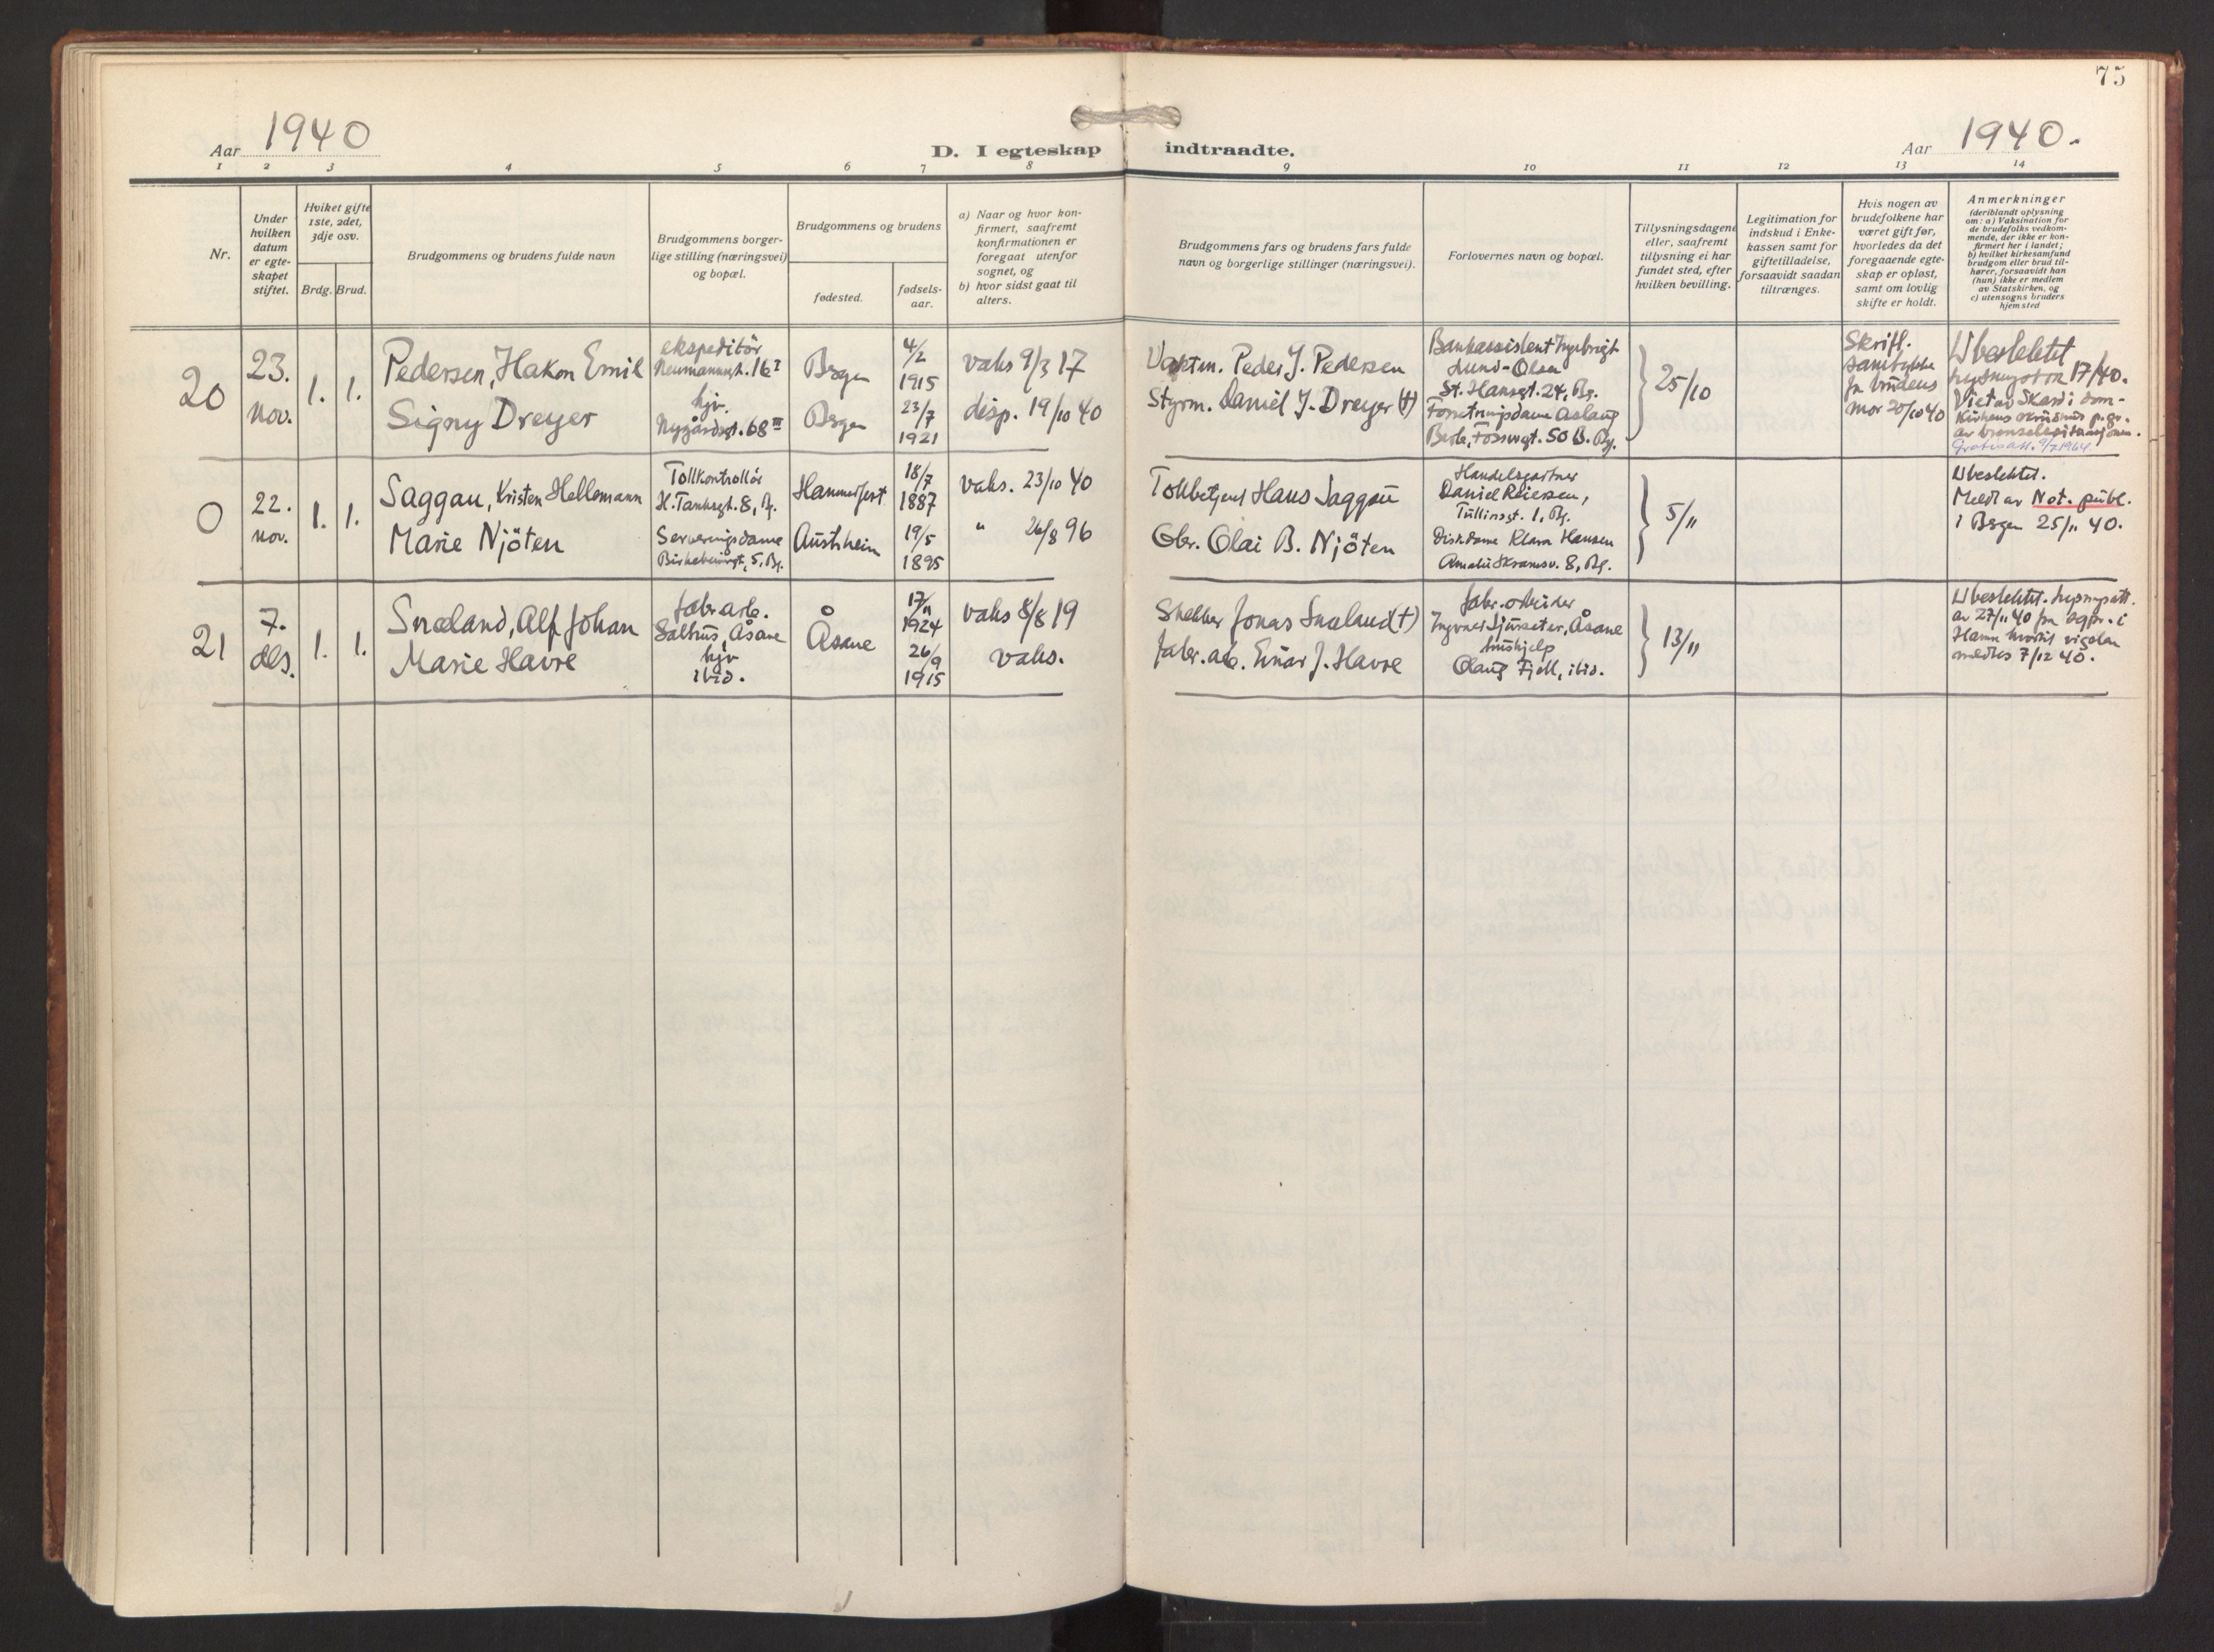 75
Aar 1940
D. I egteskap indtraadte.
Aar 1940.
1 2 3 4 5 6 7 8 9 10 11 12 13 14
Nr.
Under
hvilken
datum
er egte-
skapet
stiftet.
Hviket gifte
1ste, 2det,
3dje osv.
Brdg. Brud.
Brudgommens og brudens fulde navn
Brudgommens borger-
lige stilling (næringsvei)
og bopæl.
Brudgommens og brudens
fødested.
fødsels-
aar.
a) Naar og hvor kon-
firmert, saafremt
konfirmationen er
foregaat utenfor
sognet, og
b) hvor sidst gaat til
alters.
Brudgommens fars og brudens fars fulde
navn og borgerlige stillinger (næringsvei).
Forlovernes navn og bopæl.
Tillysningsdagene
eller, saafremt
tillysning ei har
fundet sted, efter
hvilken bevilling.
Legitimation for
indskud i Enke-
kassen samt for
giftetilladelse,
forsaavidt saadan
tiltrænges.
Hvis nogen av
brudefolkene har
været gift før,
hvorledes da det
foregaaende egte-
skap er opløst,
samt om lovlig
skifte er holdt.
Anmerkninger
(deriblandt oplysning
om: a) Vaksination for
de brudefolks vedkom-
mende, der ikke er kon-
firmert her i landet;
b) hvilket kirkesamfund
brudgom eller brud til-
hører, forsaavidt han
(hun) ikke er medlem
av Statskirken, og
c) utensogns bruders
hjemsted
20
23.
nov.
1. 1.
Pedersen, Hakon Emil
Signy Dreyer
ekspeditör
Neumannsgt. 16 I
hjv.
Nygårdsgt. 68 III
Bergen
Bergen
4/2
1915
23/7
1921
vaks 9/3 17
disp. 19/10 40
Vaktm. Peder J. Pedersen
Styrm. Daniel J. Dreyer (†)
Bankassistent Ingebrigt
Lund-Olsen
St. Hansgt. 24, Bg.
Forretningsdame Aslaug
Berle, Fosswgt. 50 B. Bg.
25/10
Skriftl.
samtykke
fra brudens
mor 20/10 40
Ubeslektet
17/ 40.
Viet av Skard i dom-
kirkens
av
9/7 1964
0
22.
nov.
1. 1.
Saggau, Kristen Hellemann
Marie Njöten
Tollkontrollör
H. Tanksgt. 8, Bg.
Serveringsdame
Birkebeinergt. 5, Bg.
Hammerfest
Austrheim
18/7
1887
19/5
1895
vaks. 23/10 40
" 26/8 96
Tollbetjent Hans Saggau
Gbr. Olai B. Njöten
Handelsgartner
Daniel Reiersen,
Tullinsgt. 1, Bg.
Diskdame Klara Hansen
Amalie Skramsv. 8, Bg.
5/11
Ubeslektet.
Meldt av Not. publ.
i Bergen 25/11 40.
21
7.
des.
1. 1.
Snæland, Alf Johan
Marie Havre
fabr.arb.
Salhus, Åsane
hjv
ibid.
Åsane
17/11
1924
26/9
1915
vaks 8/8 19
vaks.
Jonas Snæland (†)
fabr.arb. Einar J. Havre
fabr.arbeider
Ingvald Sjursæter, Åsane
hushjelp
Olaug Fjell, ibid.
13/11
Ubeslektet.
av 27/11 40 fra sogpr. i
Hamre hvortil vigslen
meldtes 7/12 40.